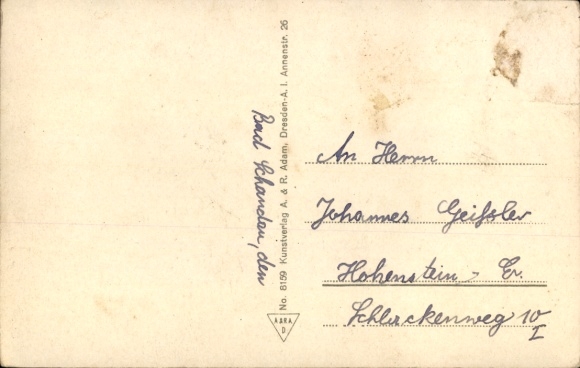 Bad Schandau, den
No. 8159 Kunstverlag A. & R. Adam, Dresden-A. I. Annenstr. 26
AARA
D
An Herrn
Johannes Geißler
Hohenstein - Er.
Schlackenweg 10
I